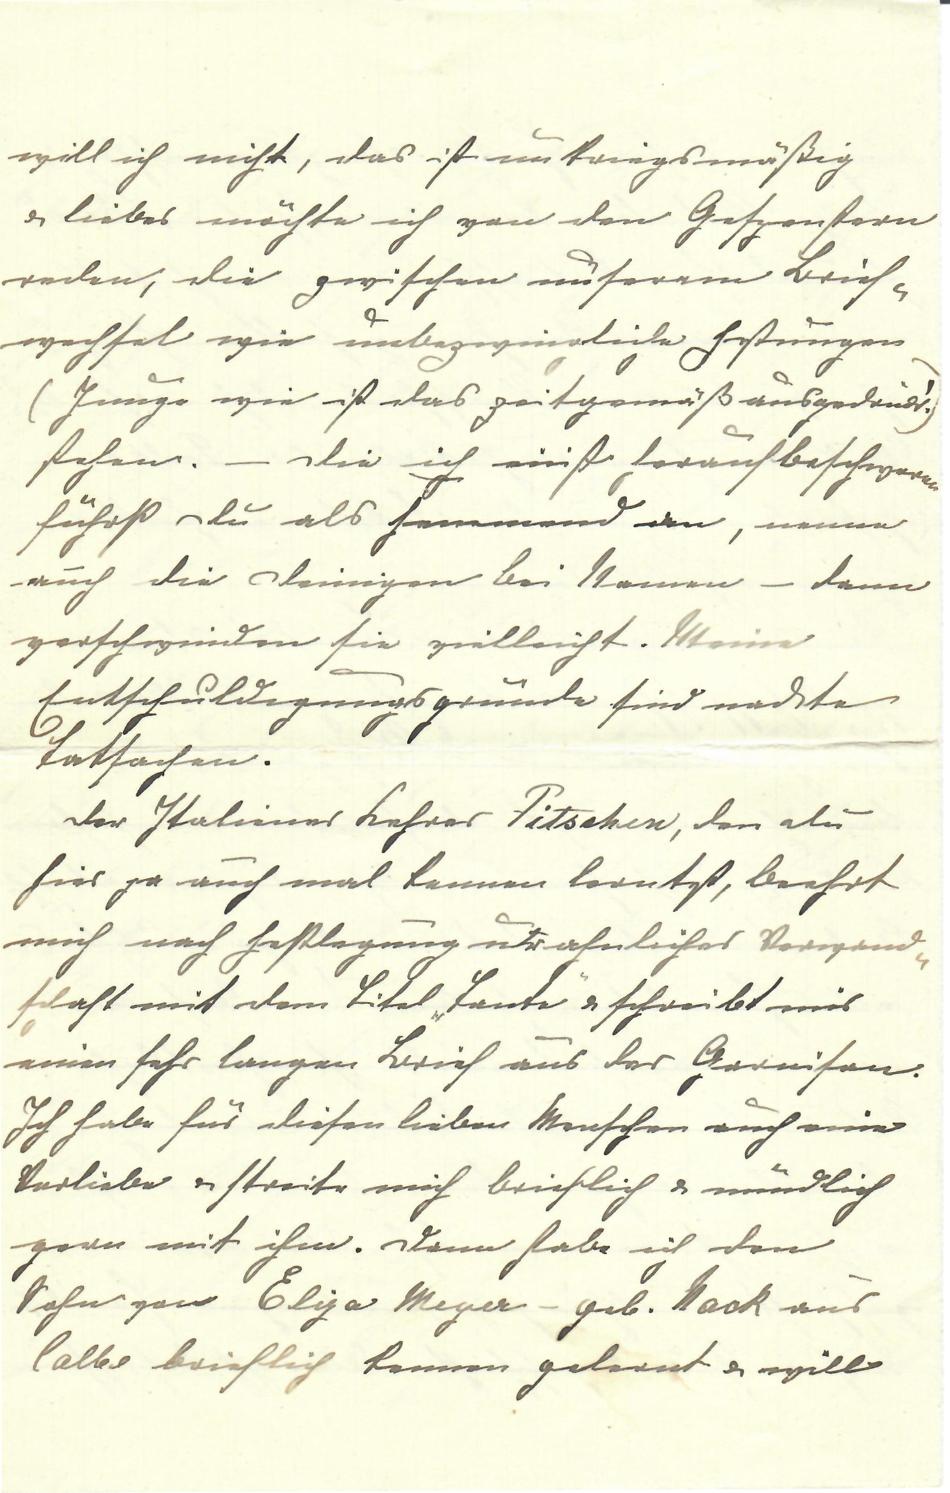 will ich nicht, das ist unkriegsmäßig
& lieber möchte ich von den Gespenstern
reden, die zwischen unserem Brief„
wechsel wie unbezwingliche Festungen
(Junge wie ist das zeitgemäß ausgedrückt!)
stehen. – Die ich einst heraufbeschworen
führst Du als hemmend an, nenne
auch die Deinigen bei Namen – dann
verschwinden sie vielleicht. Meine
Entschuldigungsgründe sind nackte
Tatsachen.
Der Italiener Lehrer Pitschen, den Du
hier ja auch mal kennen lerntest, beehrt
mich nach Festlegung urahnlicher Verwand„
schaft mit dem Titel „Tante" & schreibt mir
einen sehr langen Brief aus der Garnison.
Ich habe für diesen lieben Menschen auch eine
Vorliebe & streite mich brieflich & mündlich
gern mit ihm. Dann habe ich den
Sohn von Eliza Meyer – geb. Nack aus
Calbe brieflich kennen gelernt & will